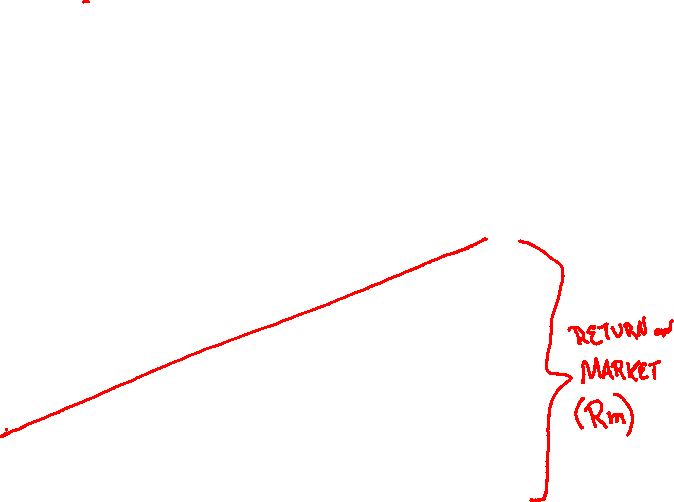 RETURN on
MARKET
(Rm)